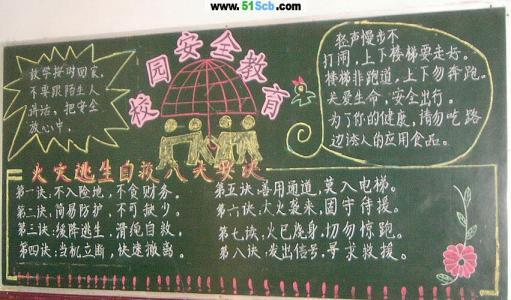 www.51Scb.com
校园安全教育
放学按时回家,
不要跟陌生人
讲话,把安全
放心中。
轻声慢步不
打闹,上下楼梯要走好。
楼梯非跑道,上下勿奔跑。
关爱生命,安全出行。
为了你的健康,请勿吃路
边诱人的应用食品。
火灾逃生自救八大要诀
第一诀:不入险地,不贪财务。
第二诀:简易防护,不可缺少。
第三诀:缓降逃生,滑绳自救。
第四诀:当机立断,快速撤离。
第五诀:善用通道,莫入电梯。
第六诀:大火袭来,固守待援。
第七诀:火已烧身,切勿惊跑。
第八诀:发出信号,寻求救援。